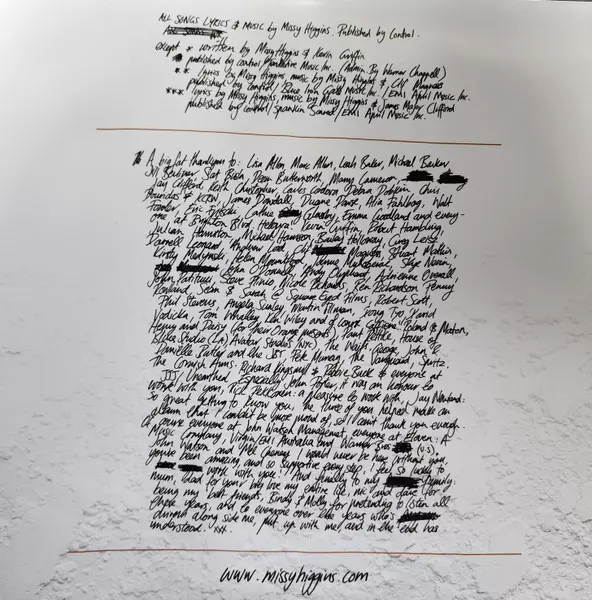 ALL SONGS LYRICS & MUSIC BY MISSY HIGGINS. Published by Control.
except * written by Missy Higgins & Kevin Griffin
published by Control / Music Inc. (Admin. By Warner Chappell)
** lyrics by Missy Higgins music by Missy Higgins &
published by Control / Blue Iron Gate Music Inc. / EMI April Music Inc.
*** lyrics by Missy Higgins, music by Missy Higgins & James Major Clifford
published by Control, Spankin Sound, EMI April Music Inc.
A big fat thankyou to: Lisa Allen, Marc Allen, Leah Baker, Michael Barker
Jill Slat Bush, Dean Butterworth, Manny Cameron,
Jay Clifford, Keith Christopher, Carlos Cordova, Debra Dobkin, Chris
Douridas & KCRW, James Dowdall, Duane Dowse, Alia Fahlborg, Walt
Fowler, Eric Fritschi, Cathie Glassby, Emma Goodland and every-
one at Brighton Blvd, Hebara! Kevin Griffin, Robert Hambling,
Julian Hamilton, Michael Hampson, Bailey Holloway, Greg Leisz
Darnell Leonard, Andrew Lord, Magness, Stuart Mathis,
Kirsty Medynski, Helen Mountfort, Steve Nieve,
John O'Donnell, Andy Oyphant, Adrienne Overall
John Patitucci, Steve Pinto, Nicole Richards, Ken Richardson, Jenny
Rowland, Sean & Sarah @ Square Eyed Films, Robert Scott,
Phil Stevens, Angela Sunley, Martin Tillman, Jorg Tyo
Vodicka, Tom Whalley, Leh Wiley and of course offerene Poland & Norton,
Henry and Daisy (for their Orange presents), Paul Kettle, House of
Blues Studio (LA), Avatar Studios (NYC) The Waifs, George, John &
Danielle Butler and the JBT, Pete Murray, The Sanguaid, Spritz,
The Cornish Arms. Richard Kingsmill & Robbie Buck & everyone at
JJJ, Unearthed. Especially John Porter, it was an honour to
work with you, Rob PetCoren: a pleasure to work with, Jay Newland:
so great getting to know you, the three of you helped make an
album that I couldn't be more proud of, so I can't thank you enough.
Of course everyone at John Watson Management, everyone at Eleven: A
Music Company, Virgin/EMI Australia and Warner Bros (U.S)
John Watson and Mel Cheney I would never be here without you,
you've been amazing and so supportive every step, I feel so lucky to
work with you. And finally to my family:
mum, dad for your big love my entire life, nic and dave for
being my best friends, Bindy & Molly for pretending to listen all
these years, and to everyone over the years who's
dumped along side me, put up with me, and in the end has
understood. xx.
www.missyhiggins.com